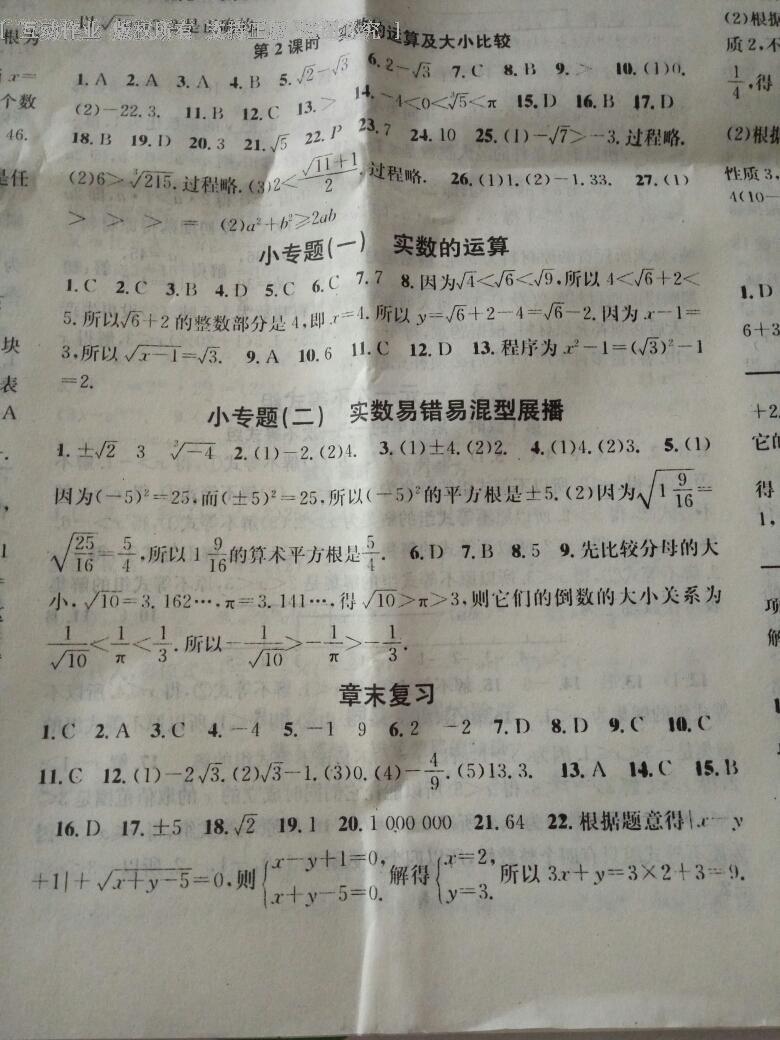 [ 互动作业 版权所有 盗
第2课时 实数的运算及大小比较
根为
1.A 2.A 3.A 4.B 5.√2-√3 6.2-√3 7.C 8.B 9.> 10.(1)0.
x=
个数
(2)-22.3. 11.B 12.C 13.> 14.-4<0<∛5<π 15.D 16.B 17.D
46.
18.B 19.D 20.3 21.√5 22.P 23.7 24.10 25.(1)-√7>-3.过程略.
是任
(2)6>∛215.过程略.(3)2<(√11+1)/2.过程略. 26.(1)1.(2)-1.33. 27.(1)
> > > = (2)a²+b²≥2ab
小专题(一) 实数的运算
1.C 2.C 3.B 4.D 5.C 6.C 7.7 8.因为√4<√6<√9,所以4<√6+2<
5.所以√6+2的整数部分是4,即x=4.所以y=√6+2-4=√6-2.因为x-1=
块
3,所以√(x-1)=√3. 9.A 10.6 11.C 12.D 13.程序为x²-1=(√3)²-1
表
=2.
A
小专题(二) 实数易错易混型展播
1.±√2 3 ∛-4 2.(1)-2.(2)4. 3.(1)±4.(2)2. 4.(1)4.(2)3. 5.(1)
因为(-5)²=25,而(±5)²=25,所以(-5)²的平方根是±5.(2)因为√(1 9/16)=
√(25/16)=5/4,所以1 9/16的算术平方根是5/4. 6.D 7.B 8.5 9.先比较分母的大
小,√10=3.162…,π=3.141…,得√10>π>3,则它们的倒数的大小关系为
1/√10<1/π<1/3.所以-1/√10>-1/π>-1/3.
章末复习
1.C 2.A 3.C 4.-4 5.-1 9 6.2 -2 7.D 8.D 9.C 10.C
11.C 12.(1)-2√3.(2)√3-1.(3)0.(4)-4/9.(5)13.3. 13.A 14.C 15.B
16.D 17.±5 18.√2 19.1 20.1 000 000 21.64 22.根据题意得|x-y
+1|+√(x+y-5)=0,则{x-y+1=0, x+y-5=0. 解得{x=2, y=3. 所以3x+y=3×2+3=9.
(2)根据
质2,不
1/4,得
(2)根据
性质3,
4(10-
1.D
6+3
+2
它的
得
1,
项
解